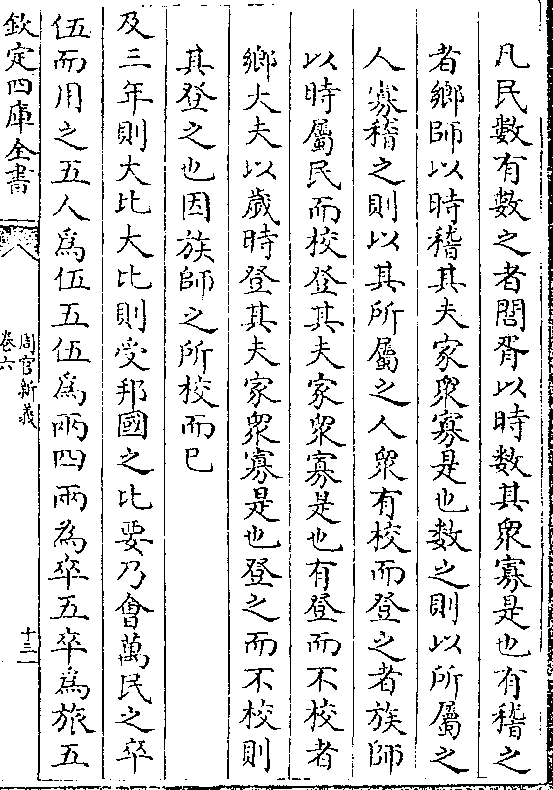 凡民數有數之者閭胥以時數其衆寡是也有稽之
者鄉師以時稽其夫家衆寡是也數之則以所屬之
人寡稽之則以其所屬之人衆有校而登之者族師
以時屬民而校登其夫家衆寡是也有登而不校者
鄉大夫以歲時登其夫家衆寡是也登之而不校則
其登之也因族師之所校而已
及三年則大比大比則受邦國之比要乃會萬民之卒
伍而用之五人爲伍五伍爲兩四兩為卒五卒爲旅五
欽定四庫全書
周官新義
卷六
十三